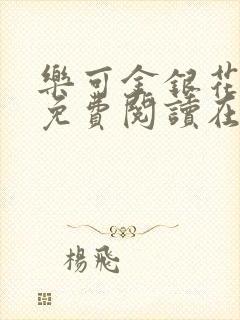 樂可金銀花
免費閱讀在
楊飛